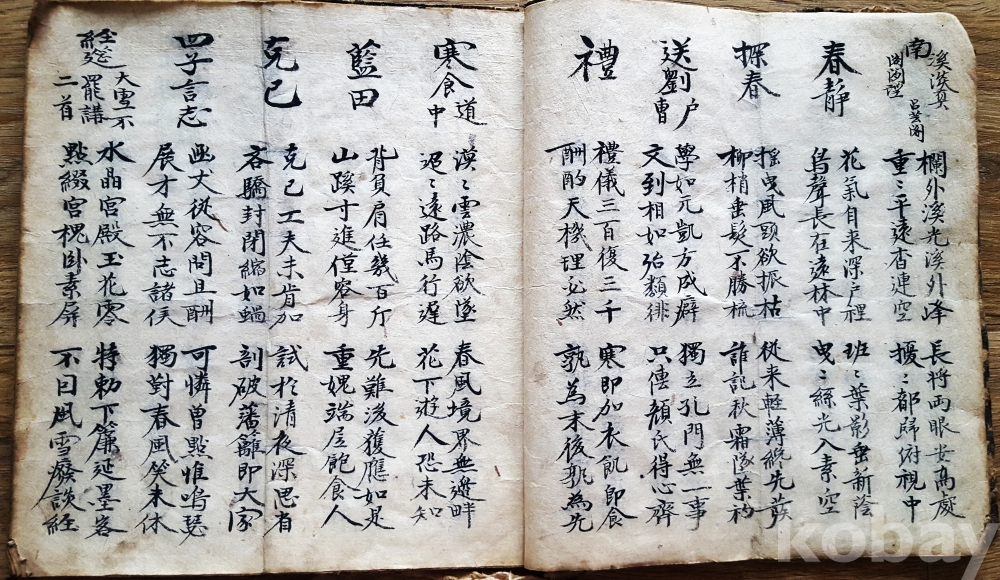 南溪淡真閣閑望
呂芸閣
欄外溪光溪外峰 長將兩眼安高處
重〻平遠杳連空 擾〻都歸俯視中
春靜
花氣自来深戶裡 班〻葉影垂新陰
鳥聲長在遠林中 曳〻絲光入素空
探春
搖曳風頭欲振枯 從来輕薄終先發
柳梢垂髮不勝梳 誰記秋霜墜葉初
送劉户曹
學如元凱方成癖 獨立孔門無一事
文到相如殆類徘 只傳顔氏得心齊
禮
禮儀三百復三千 寒即加衣飢即食
酬酌天機理必然 孰為末後孰為先
寒食道中
漠〻雲濃陰欲墜 春風境界無邊畔
迟〻遠路馬行遲 花下遊人恐未知
藍田
背負肩任幾百斤 先難後獲應如是
山蹊寸進僅容身 重媿端居飽食人
克己
克己工夫未肯加 試於清夜深思省
吝驕封閉縮如蝸 剖破藩籬即大家
四子言志
凾丈從容問且酬 可憐曾點惟鳴瑟
展才無不志諸侯 獨對春風笑未休
經筵大雪不罷講二首
水晶宮殿玉花零 特勅下簾延墨客
點綴宮槐卧素屏 不因風雪廢談經
kobay